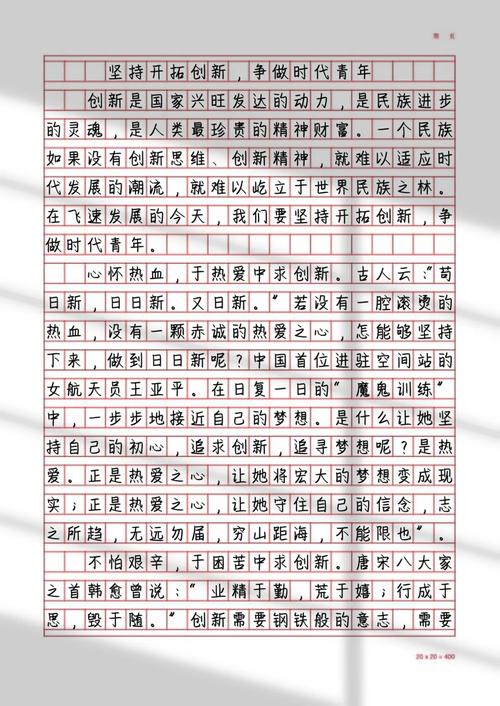 坚持开拓创新，争做时代青年
创新是国家兴旺发达的动力，是民族进步
的灵魂，是人类最珍贵的精神财富。一个民族
如果没有创新思维、创新精神，就难以适应时
代发展的潮流，就难以屹立于世界民族之林。
在飞速发展的今天，我们要坚持开拓创新，争
做时代青年。
心怀热血，于热爱中求创新。古人云：“苟
日新，日日新。又日新。”若没有一腔滚烫的
热血，没有一颗赤诚的热爱之心，怎能够坚持
下来，做到日日新呢？中国首位进驻空间站的
女航天员王亚平。在日复一日的“魔鬼训练”
中，一步步地接近自己的梦想。是什么让她坚
持自己的初心，追求创新，追寻梦想呢？是热
爱。正是热爱之心，让她将宏大的梦想变成现
实；正是热爱之心，让她守住自己的信念，志
之所趋，无远勿届，穷山距海，不能限也”。
不怕艰辛，于困苦中求创新。唐宋八大家
之首韩愈曾说：“业精于勤，荒于嬉；行成于
思，毁于随。”创新需要钢铁般的意志，需要
20 x 20 = 400